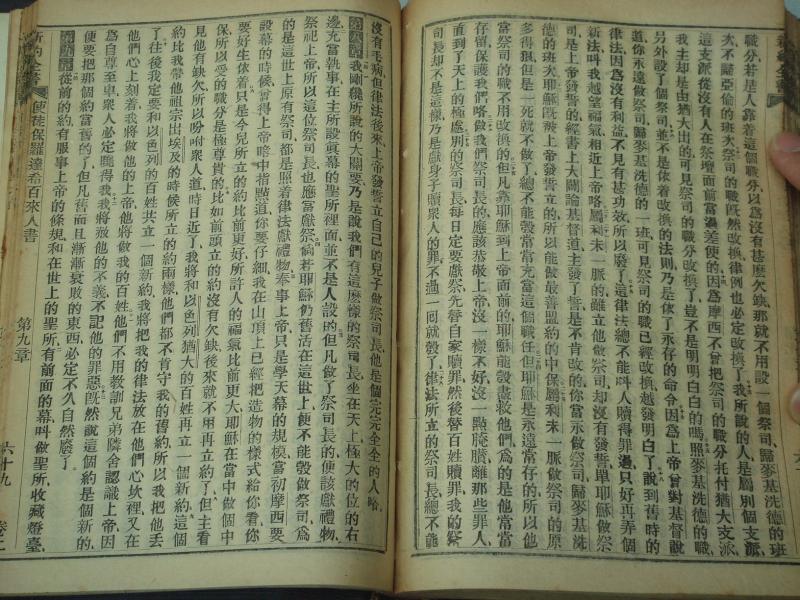 新約全書
職分若是人靠着這個職分以爲沒有甚麽欠缺那就不用設一個祭司歸麥基洗德的班
次不屬亞倫的班次大祭司的職旣然改換律例也必定改換了我所說的人是屬別個支派
這支派從沒有人在祭壇面前當過差使的因爲摩西不曾把祭司的職分托付猶大支派
我主却是由猶大出的可見祭司的職分改換了豈不是明明白白的嗎照麥基洗德的職
另外設了個祭司並不是依着改換的法則乃是依了永存的命令因爲上帝曾對基督說
道你永遠做祭司歸麥基洗德的一班可見祭司的職已經改換越發明白了說到舊時的
律法因爲沒有利益不見有甚功效所以廢了這律法總不能呌人贖得罪過只好再弄個
新法呌我越望福氣相近上帝咯屬利未一脈的雖立他做祭司却沒有發誓單耶穌做祭
司是上帝發誓的經書上大闢論基督道主發了誓是不肯改的你當永做祭司歸麥基洗
德的班次耶穌旣被上帝發誓立的所以能做最善盟約的中保屬利未一脈做祭司的原
多得狠但是一死就不做了總不能彀常常充當這個職任但耶穌是永遠常存的所以他
當祭司的職不用改換的但凡靠耶穌到上帝面前的耶穌能彀盡救他們爲的是他當當
存留保護我們咯做我們祭司長的應該恭敬上帝沒一樣不好沒一點腌臢離那些罪人
直到了天上的極處別的祭司長每日定要獻祭先替自家贖罪然後替百姓贖罪我的祭
司長却不是這樣乃是獻身子贖衆人的罪不過一回就彀了律法所立的祭司長總不能
沒有毛病但律法後來上帝發誓立自己的兒子做祭司長他是個完完全全的人咯
第八章 我剛纔所說的大關要乃是說我們有這麽樣的祭司長坐在天上極大的位的右
邊充當執事在主所設眞幕的聖所裡面並不是人設的但凡做了祭司長的便該獻禮物
祭祀上帝所以這位祭司長也應當獻祭倘若耶穌仍舊活在這世上便不能彀做祭司爲
的是這世上原有祭司都是照着律法獻禮物奉事上帝只是學天幕的規模當初摩西要
設幕的時候曾得上帝暗中指點道你要仔細我在山頂上已經把造物的樣式給你看你
要好生依着只是今兒所立的約比前更好所許人的福氣比前更大耶穌在當中做個中
保所以受的職分是極尊貴的比如前頭立的約沒有欠缺後來就不用再立約了但主看
見他有欠缺所以吩咐衆人道時日近了我將和以色列猶大的百姓再立一個新約這個
約比我帶他祖宗出埃及的時候所立的約兩樣他們都不肯守我的舊約所以我把他丢
了往後我定要和以色列的百姓共立一個新約我將把我的律法放在他們心坎裡又在
他們心上刻着我將做他的上帝他將做我的百姓他們不用教訓兄弟隣舍認識上帝因
爲自尊至卑衆人必定曉得我我將赦他的不義不記他的罪惡旣然說這個約是個新的
便要把那個約當舊的了但凡舊而且漸漸衰敗的東西必定不久自然廢了
第九章 從前的約有服事上帝的條規和在世上的聖所有前面的幕呌做聖所收藏燈臺
新約全書
使徒保羅達希百來人書
第九章
六十九